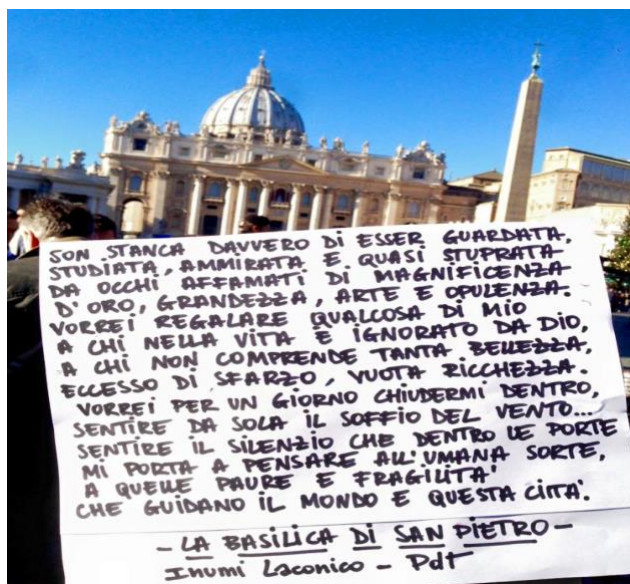 SON STANCA DAVVERO DI ESSER GUARDATA,
STUDIATA, AMMIRATA E QUASI STUPRATA
DA OCCHI AFFAMATI DI MAGNIFICENZA
D'ORO, GRANDEZZA, ARTE E OPULENZA.
VORREI REGALARE QUALCOSA DI MIO
A CHI NELLA VITA È IGNORATO DA DIO,
A CHI NON COMPRENDE TANTA BELLEZZA,
ECCESSO DI SFARZO, VUOTA RICCHEZZA.
VORREI PER UN GIORNO CHIUDERMI DENTRO,
SENTIRE DA SOLA IL SOFFIO DEL VENTO...
SENTIRE IL SILENZIO CHE DENTRO LE PORTE
MI PORTA A PENSARE ALL'UMANA SORTE,
A QUELLE PAURE E FRAGILITA'
CHE GUIDANO IL MONDO E QUESTA CITTA'.
- LA BASILICA DI SAN PIETRO -
Inumi Laconico - Pdt